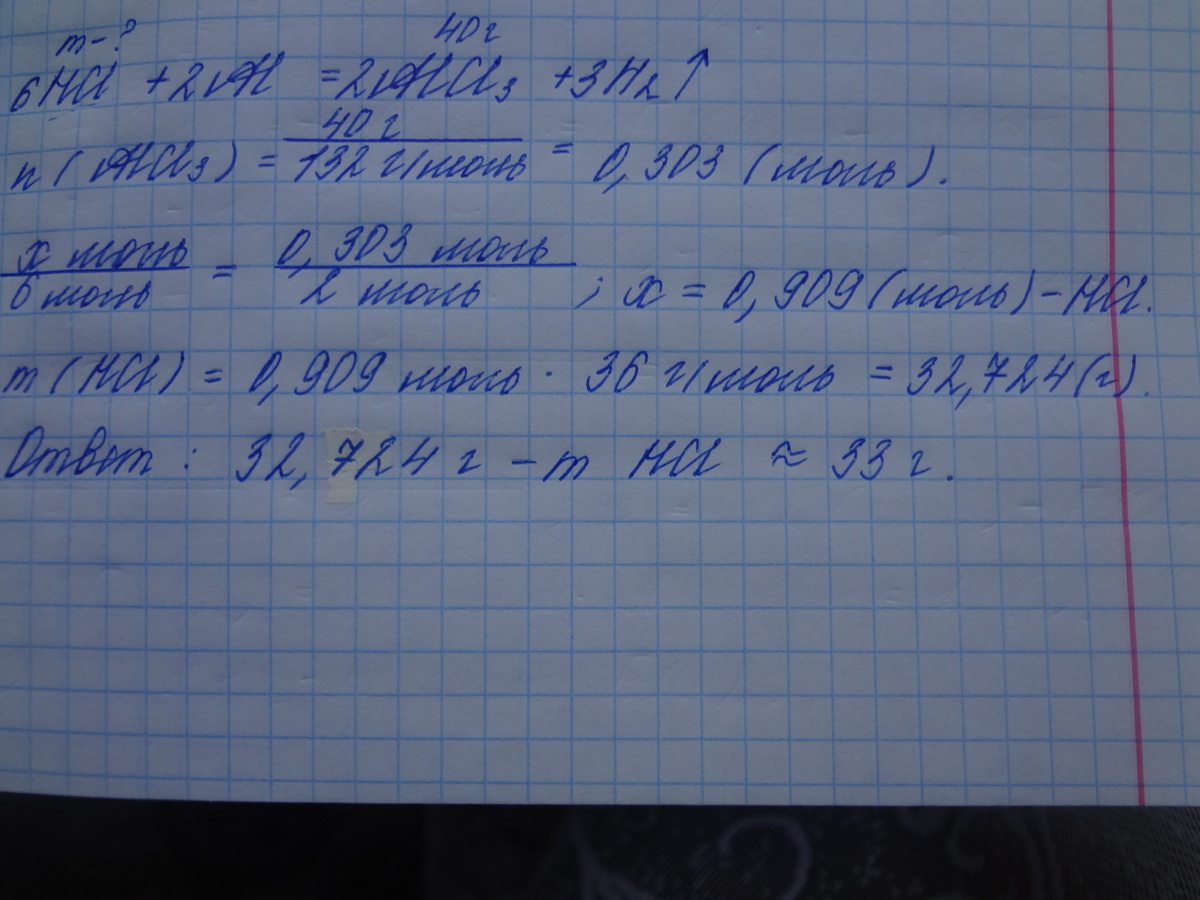 m-? 40г
6HCl + 2Al = 2AlCl₃ + 3H₂↑
n(AlCl₃) = 40 г / 132 г/моль = 0,303 (моль).
x моль / 6 моль = 0,303 моль / 2 моль ; x = 0,909 (моль) - HCl.
m(HCl) = 0,909 моль · 36 г/моль = 32,724 (г).
Ответ: 32,724 г - m HCl ≈ 33 г.